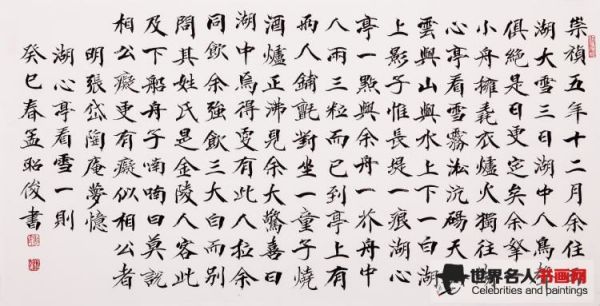 崇禎五年十二月余住
湖大雪三日湖中人鳥
俱絕是日更定矣余拏
小舟擁毳衣爐火獨往
心亭看雪霧淞沆碭天
雲與山與水上下一白湖
上影子惟長堤一痕湖心
亭一點與余舟一芥舟中
人兩三粒而已到亭上有
兩人鋪氈對坐一童子燒
酒爐正沸見余大驚喜曰
湖中焉得更有此人拉余
同飲余強飲三大白而別
問其姓氏是金陵人客此
及下船舟子喃喃曰莫說
相公癡更有癡似相公者
明張岱陶庵夢憶
湖心亭看雪一則
癸巳春孟昭俊書
世界名人书画网
Celebrities and paintings